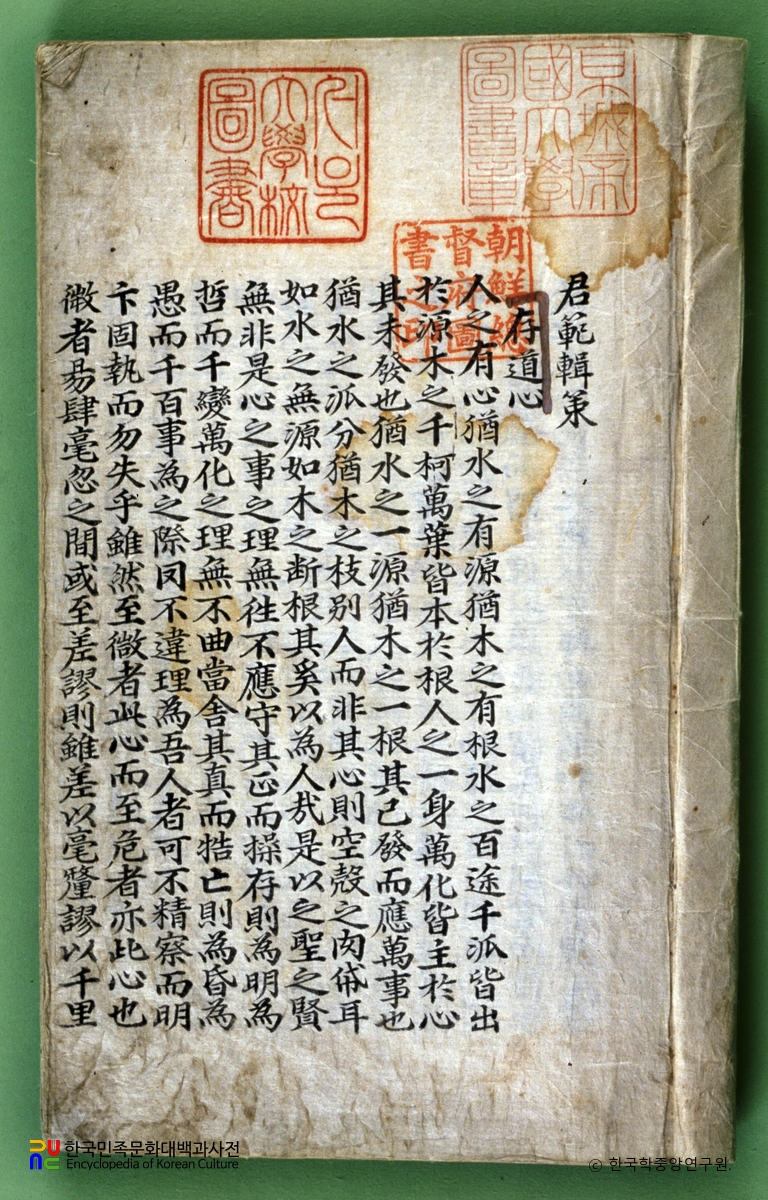 君範輯策
存道心
人之有心猶水之有源猶木之有根水之百途千派皆出
於源木之千柯萬葉皆本於根人之一身萬化皆主於心
其未發也猶水之一源猶木之一根其已發而應萬事也
猶水之派分猶木之枝別人而非其心則空殼之肉俗耳
如水之無源如木之断根其奚以為人哉是以之聖之賢
無非是心之事之理無徃不應守其正而操存則為明為
哲而千變萬化之理無不曲當舍其真而牿亡則為昏為
愚而千百事為之際罔不違理為吾人者可不精察而明
卞固執而勿失乎雖然至微者此心而至危者亦此心也
微者易肆毫忽之間或至差謬則雖差以毫釐謬以千里
京城帝國大學圖書章
大學校圖書
朝鮮總督府圖書之印
한국민족문화대백과사전
Encyclopedia of Korean Culture
© 한국학중앙연구원